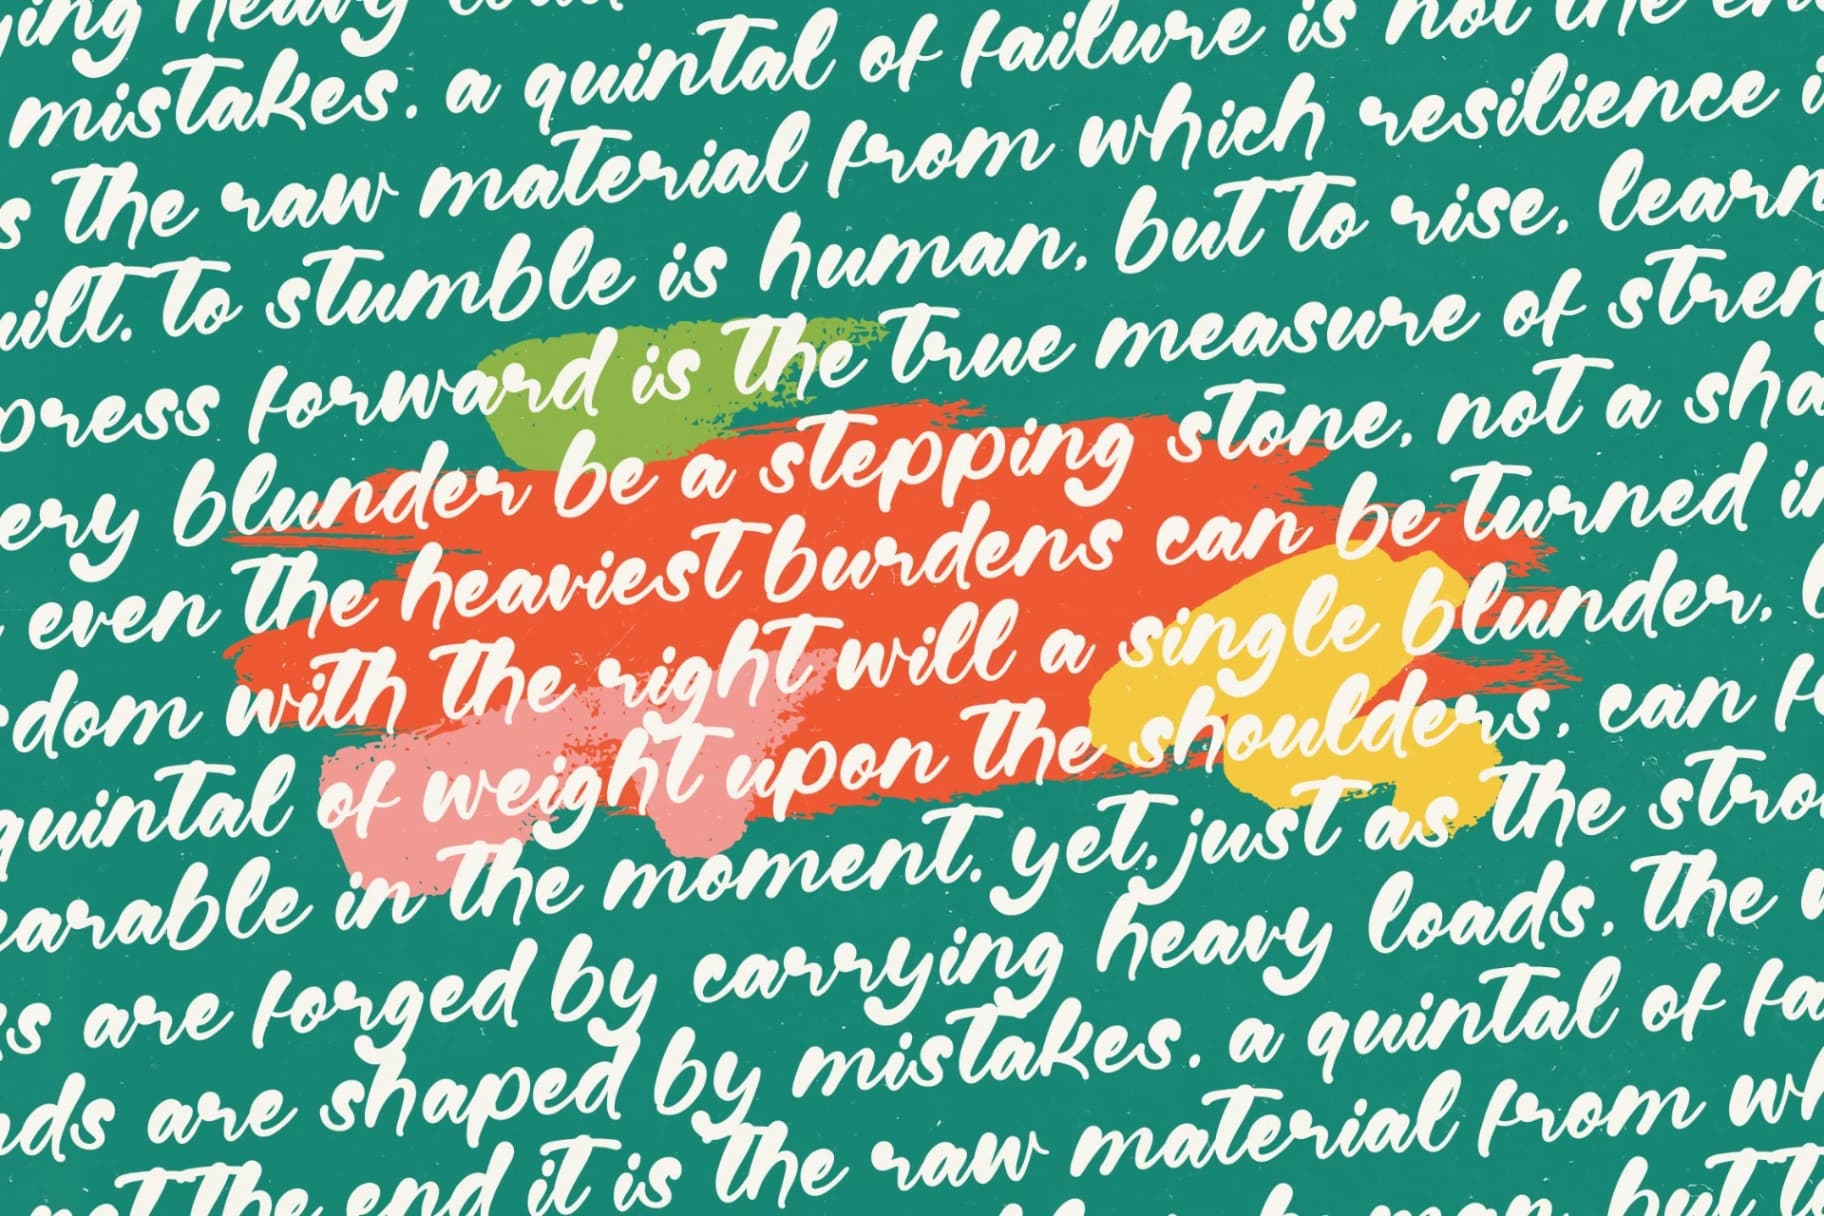 ying heavy load
mistakes. a quintal of failure is not the en
s the raw material from which resilience i
uilt. to stumble is human, but to rise, learn
press forward is the true measure of streng
ery blunder be a stepping stone, not a sha
even the heaviest burdens can be turned in
sdom with the right will a single blunder, b
quintal of weight upon the shoulders, can fe
earable in the moment. yet, just as the stro
ks are forged by carrying heavy loads, the w
nds are shaped by mistakes. a quintal of fa
not the end it is the raw material from wh
human, but to